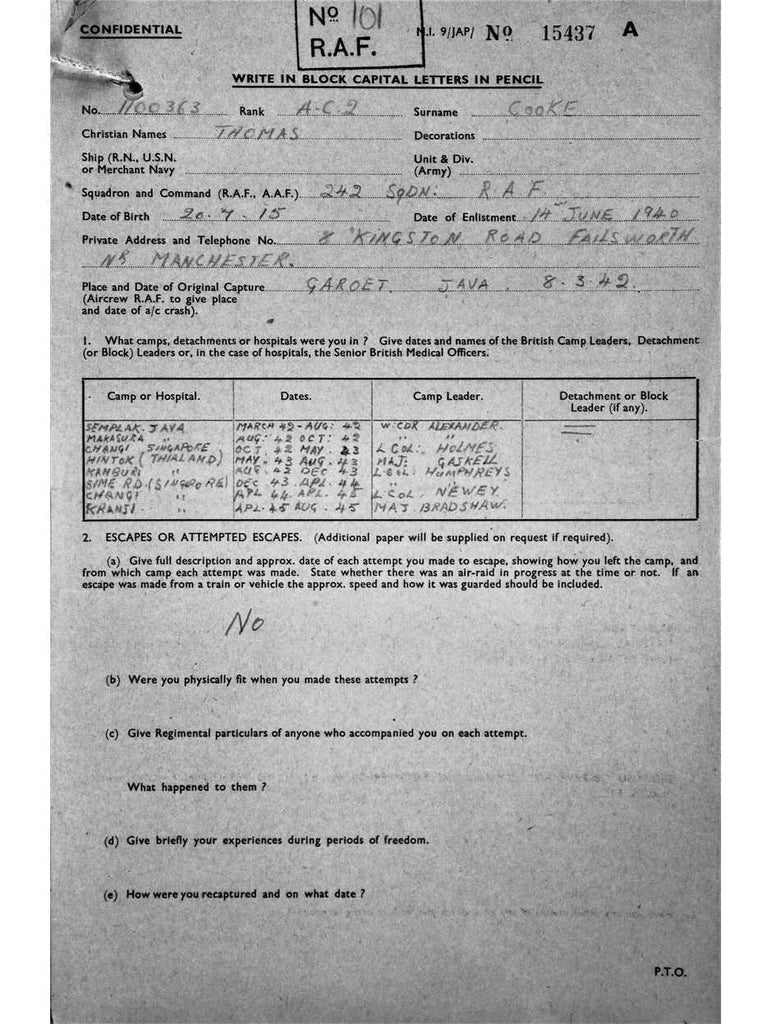 CONFIDENTIAL
No 101
R.A.F.
M.I. 9/JAP/ No 15437 A
WRITE IN BLOCK CAPITAL LETTERS IN PENCIL
No. 1100363 Rank A.C.2 Surname COOKE
Christian Names THOMAS Decorations
Ship (R.N., U.S.N. or Merchant Navy
Unit & Div. (Army)
Squadron and Command (R.A.F., A.A.F.) 242 SQDN: R A F
Date of Birth 20.7.15 Date of Enlistment 14TH JUNE 1940
Private Address and Telephone No. 8 KINGSTON ROAD FAILSWORTH
NR MANCHESTER.
Place and Date of Original Capture GAROET. JAVA. 8.3.42.
(Aircrew R.A.F. to give place
and date of a/c crash).
1. What camps, detachments or hospitals were you in ? Give dates and names of the British Camp Leaders, Detachment
(or Block) Leaders or, in the case of hospitals, the Senior British Medical Officers.
Camp or Hospital. Dates. Camp Leader. Detachment or Block
Leader (if any).
SEMPLAK. JAVA MARCH 42 - AUG: 42 W.CDR ALEXANDER.
MAKASURA " AUG: 42 OCT: 42 " "
CHANGI SINGAPORE OCT. 42 MAY. 43 L COL: HOLMES
HINTOK (THIALAND) MAY. 43 AUG. 43 MAJ: GASKELL
KANBURI " AUG. 43 DEC 43 L.COL: HUMPHREYS
SIME RD. (SINGAPORE) DEC 43. APL. 44
CHANGI " APL 44. APL. 45 L COL. NEWEY.
KRANJI. " APL. 45 AUG. 45 MAJ BRADSHAW.
2. ESCAPES OR ATTEMPTED ESCAPES. (Additional paper will be supplied on request if required).
(a) Give full description and approx. date of each attempt you made to escape, showing how you left the camp, and
from which camp each attempt was made. State whether there was an air-raid in progress at the time or not. If an
escape was made from a train or vehicle the approx. speed and how it was guarded should be included.
No
(b) Were you physically fit when you made these attempts ?
(c) Give Regimental particulars of anyone who accompanied you on each attempt.
What happened to them ?
(d) Give briefly your experiences during periods of freedom.
(e) How were you recaptured and on what date ?
P.T.O.